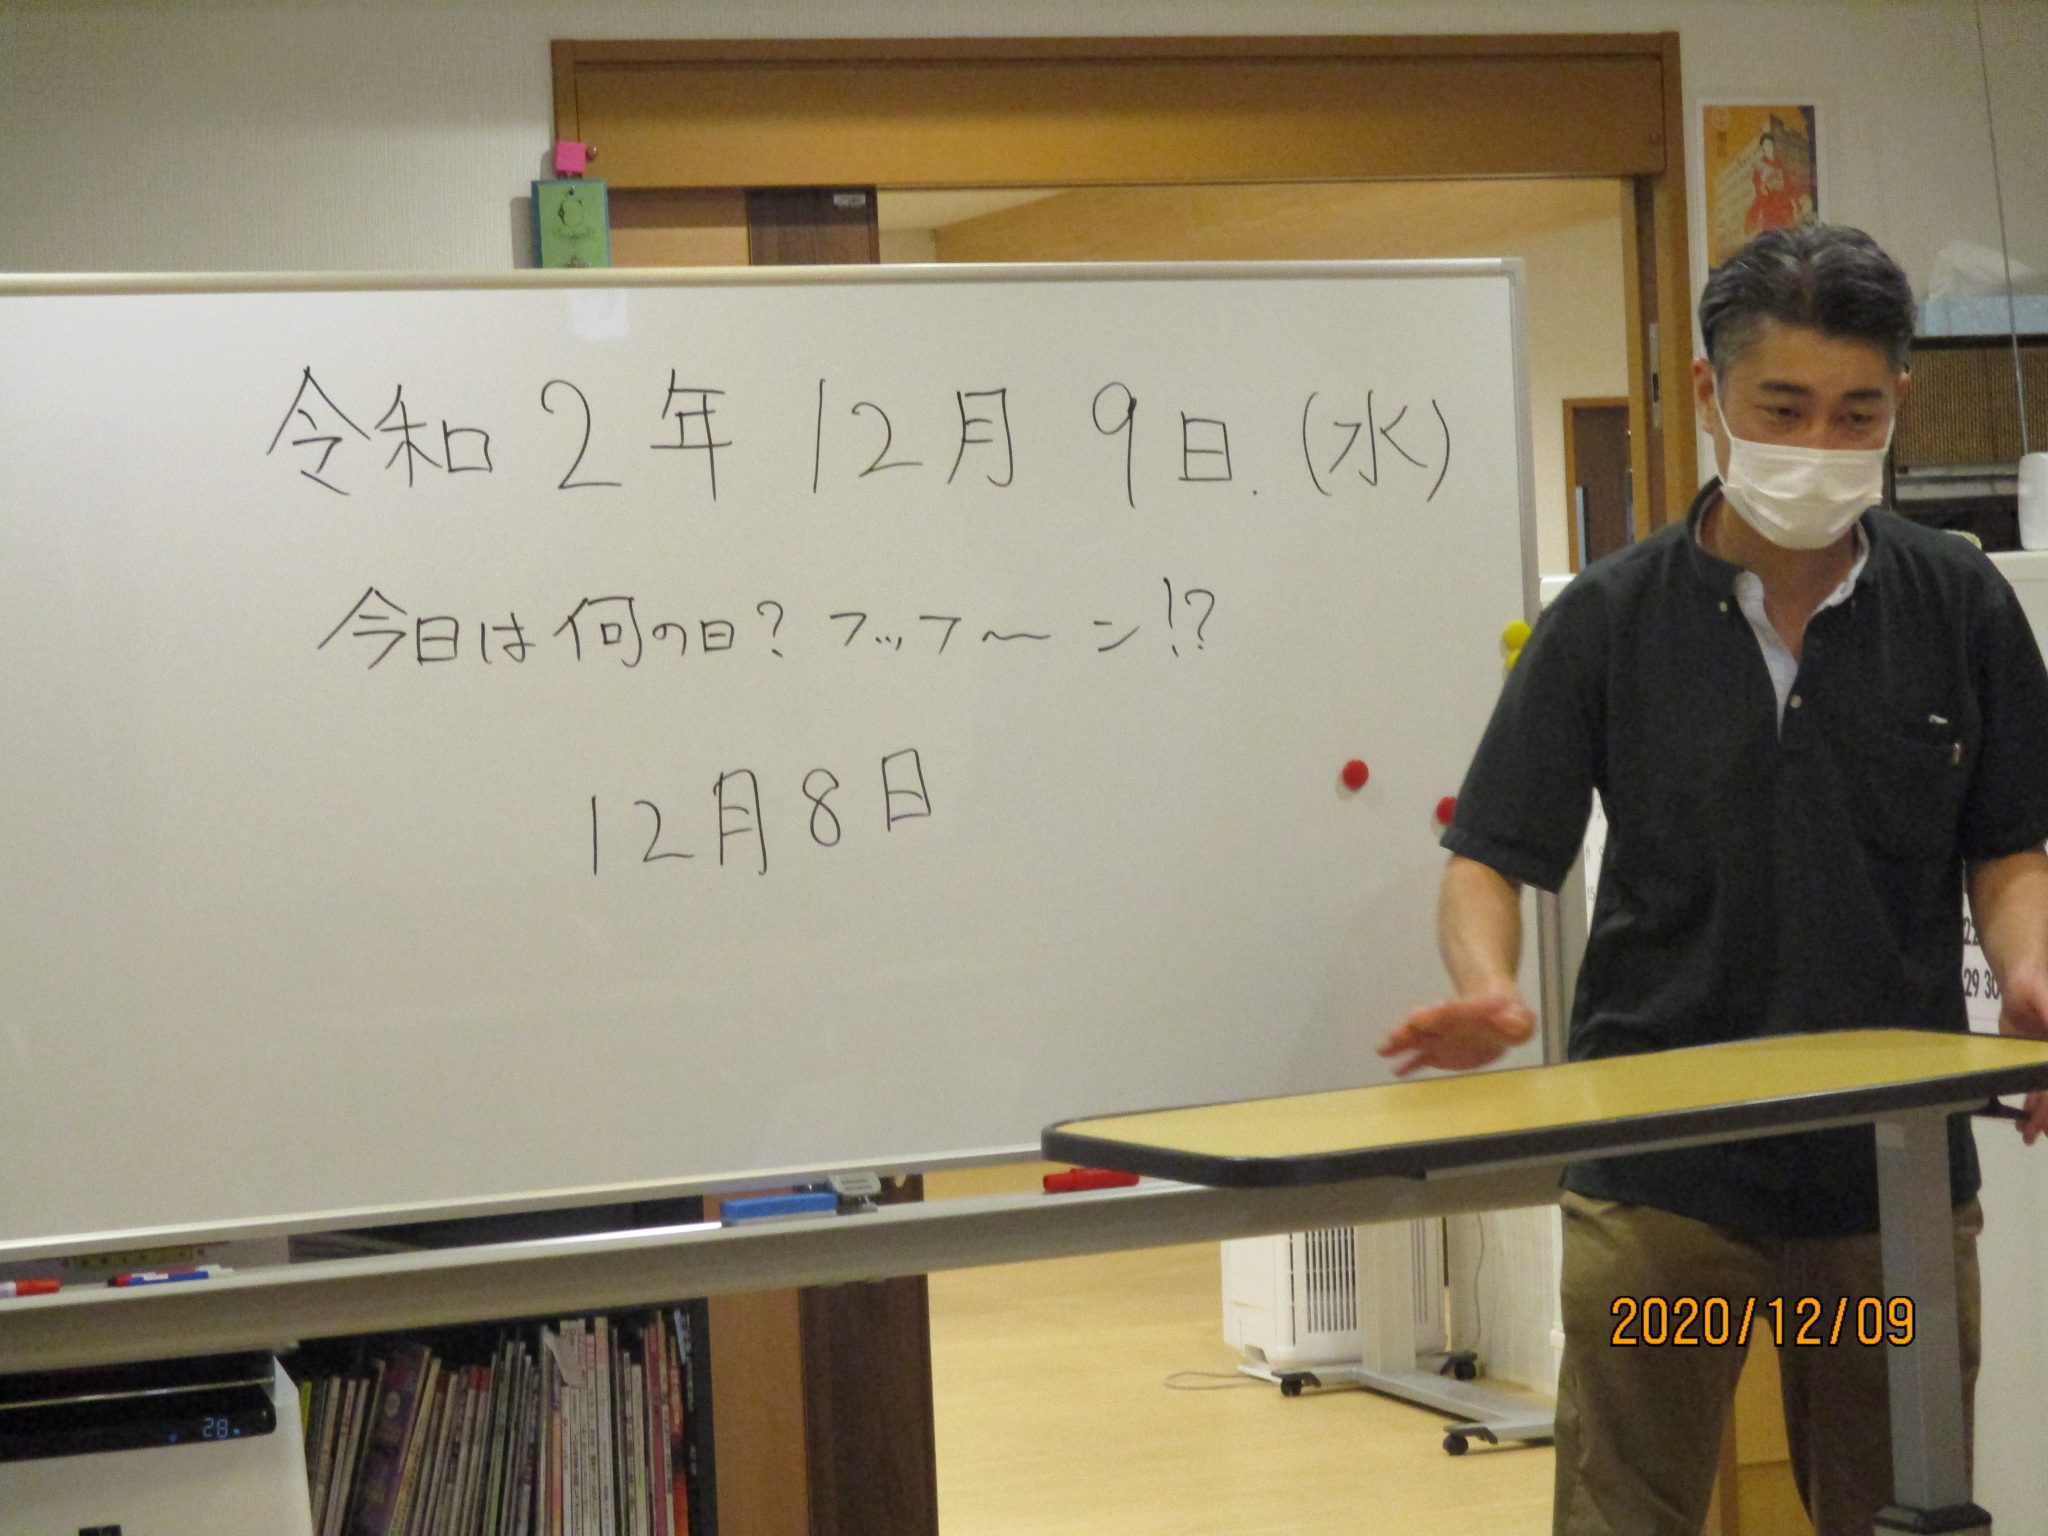 令和2年12月9日.(水)
今日は何の日?フッフ〜ン!?
12月8日
29 30
28
2020/12/09